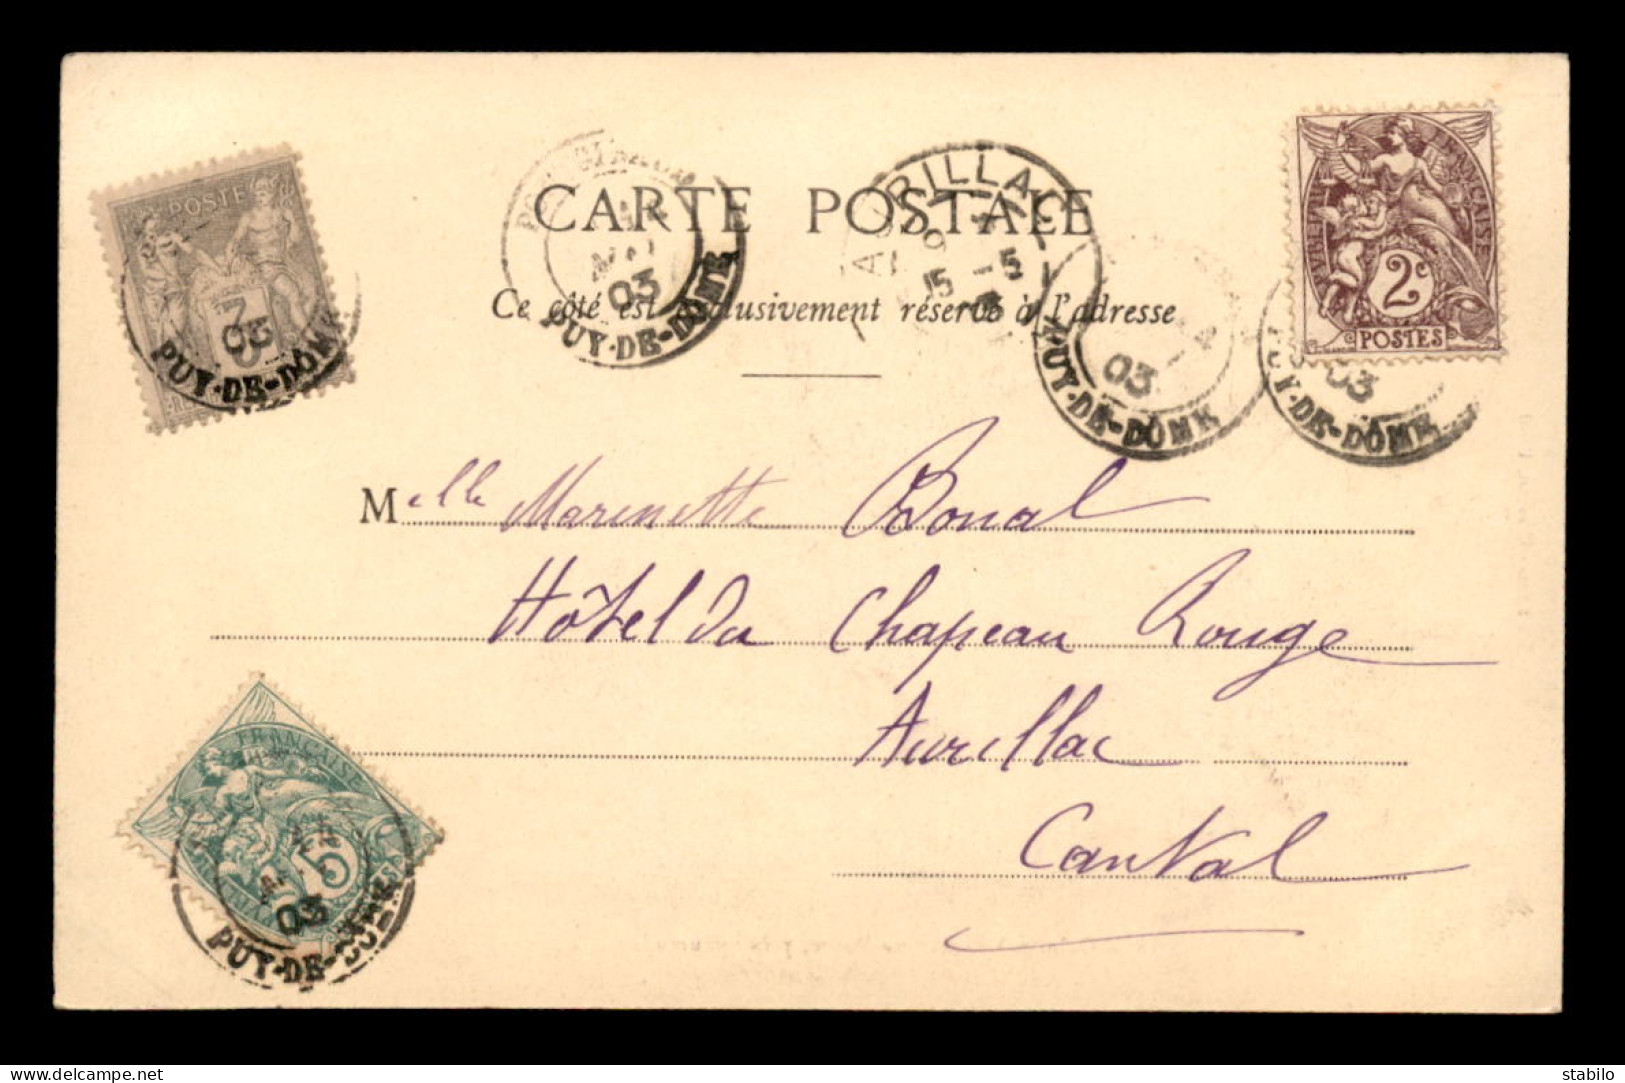 POSTE
3
03
PUY-DE-DÔME
03
PUY-DE-DÔME
AURILLAC
15 -5
03
PUY-DE-DÔME
FRANÇAISE
2c
POSTES
03
PUY-DE-DÔME
CARTE POSTALE
Ce côté est exclusivement réservé à l'adresse
Melle Marinette Bonal
Hôtel du Chapeau Rouge
Aurillac
Cantal
FRANÇAISE
5
03
PUY-DE-DÔME
www.delcampe.net
stabilo